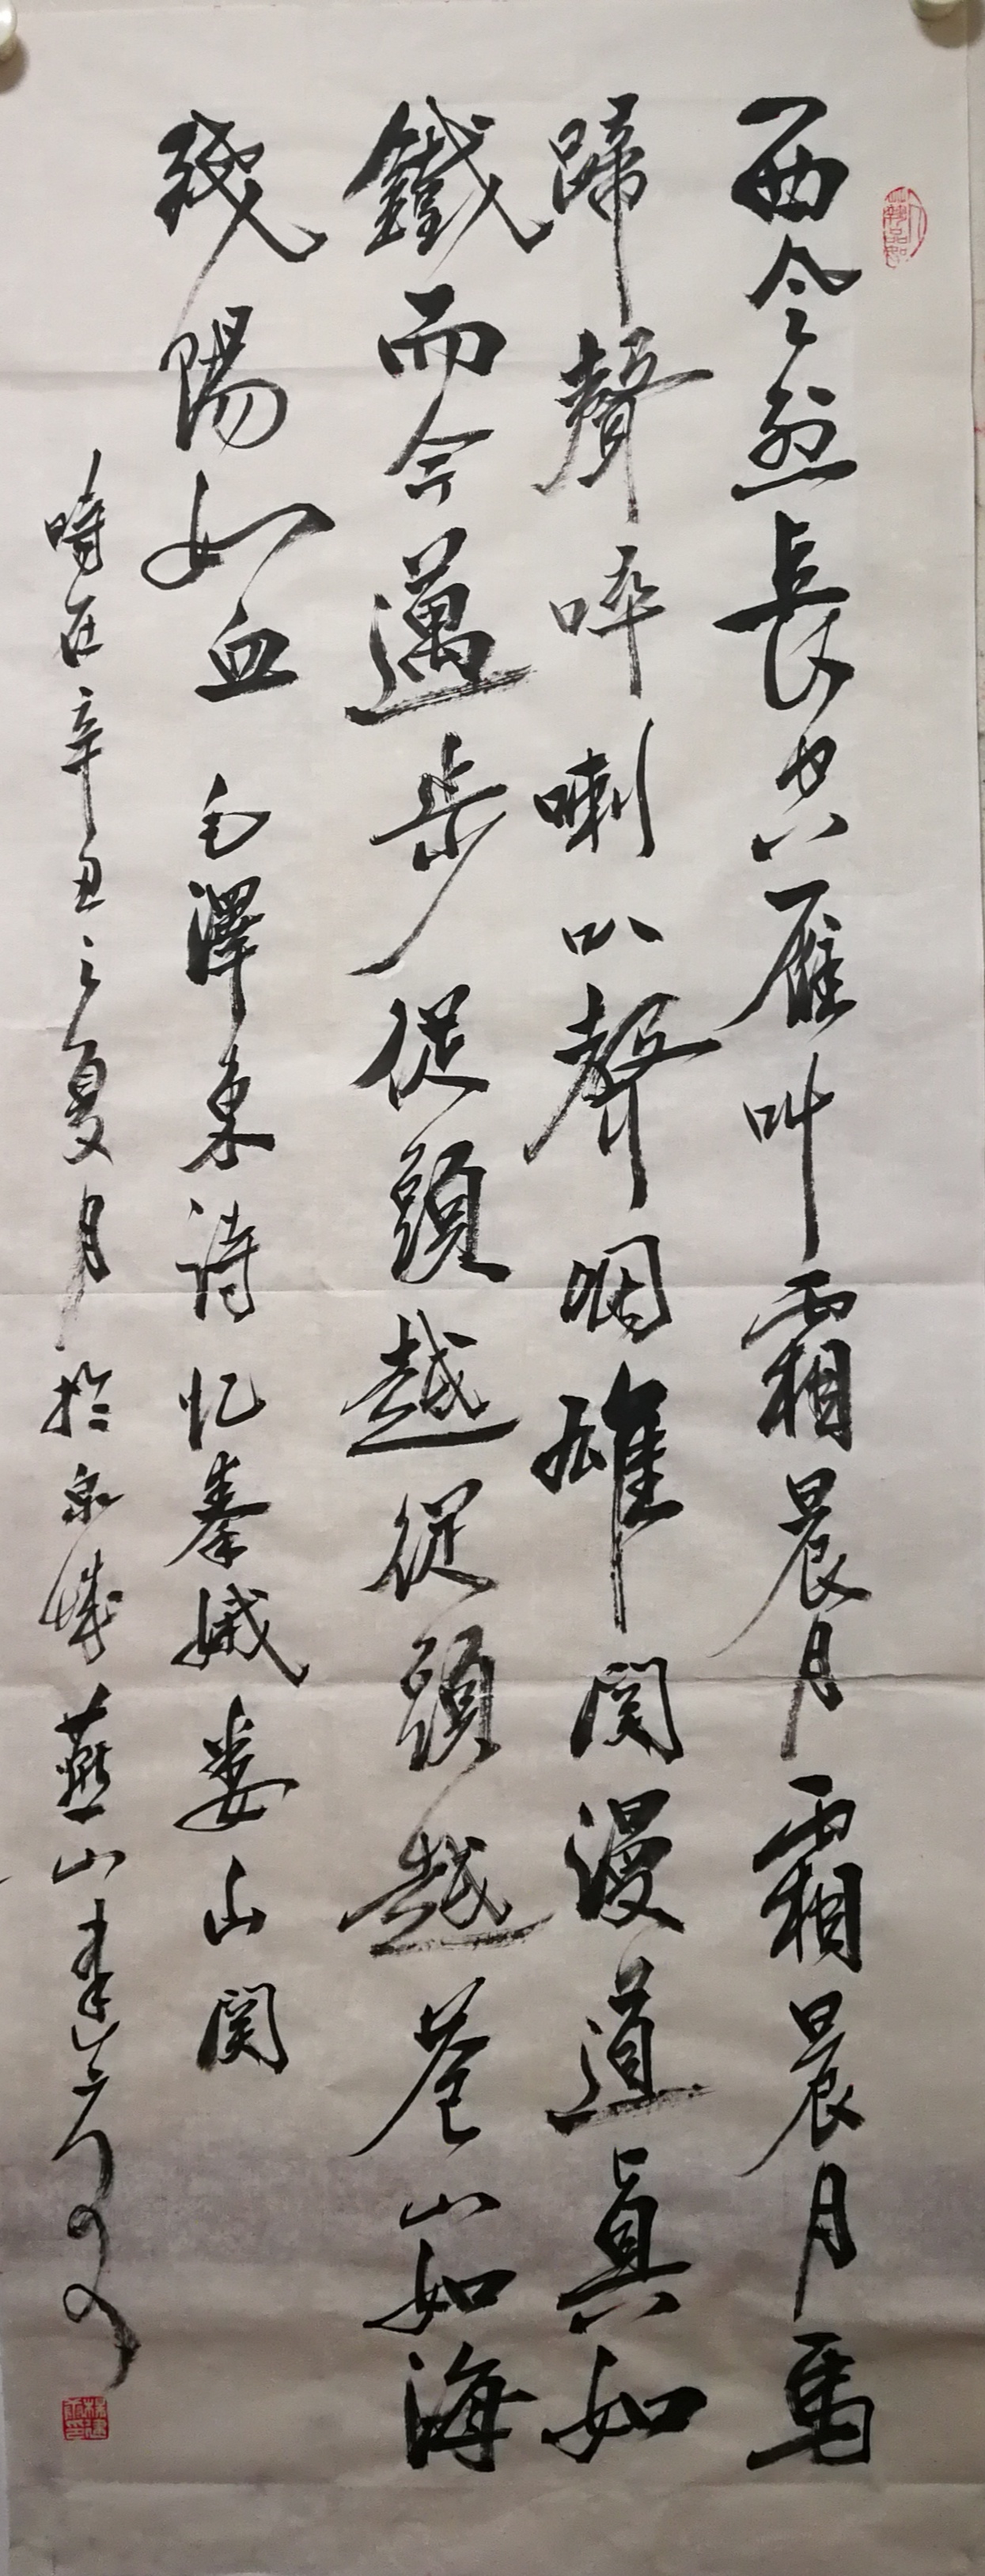 西風烈長空雁叫霜晨月霜晨月馬
蹄聲碎喇叭聲咽雄関漫道真如
鐵而今邁步從頭越從頭越苍山如海
残陽如血 毛澤東詩忆秦娥娄山関
時在辛丑之夏月於泉城燕山